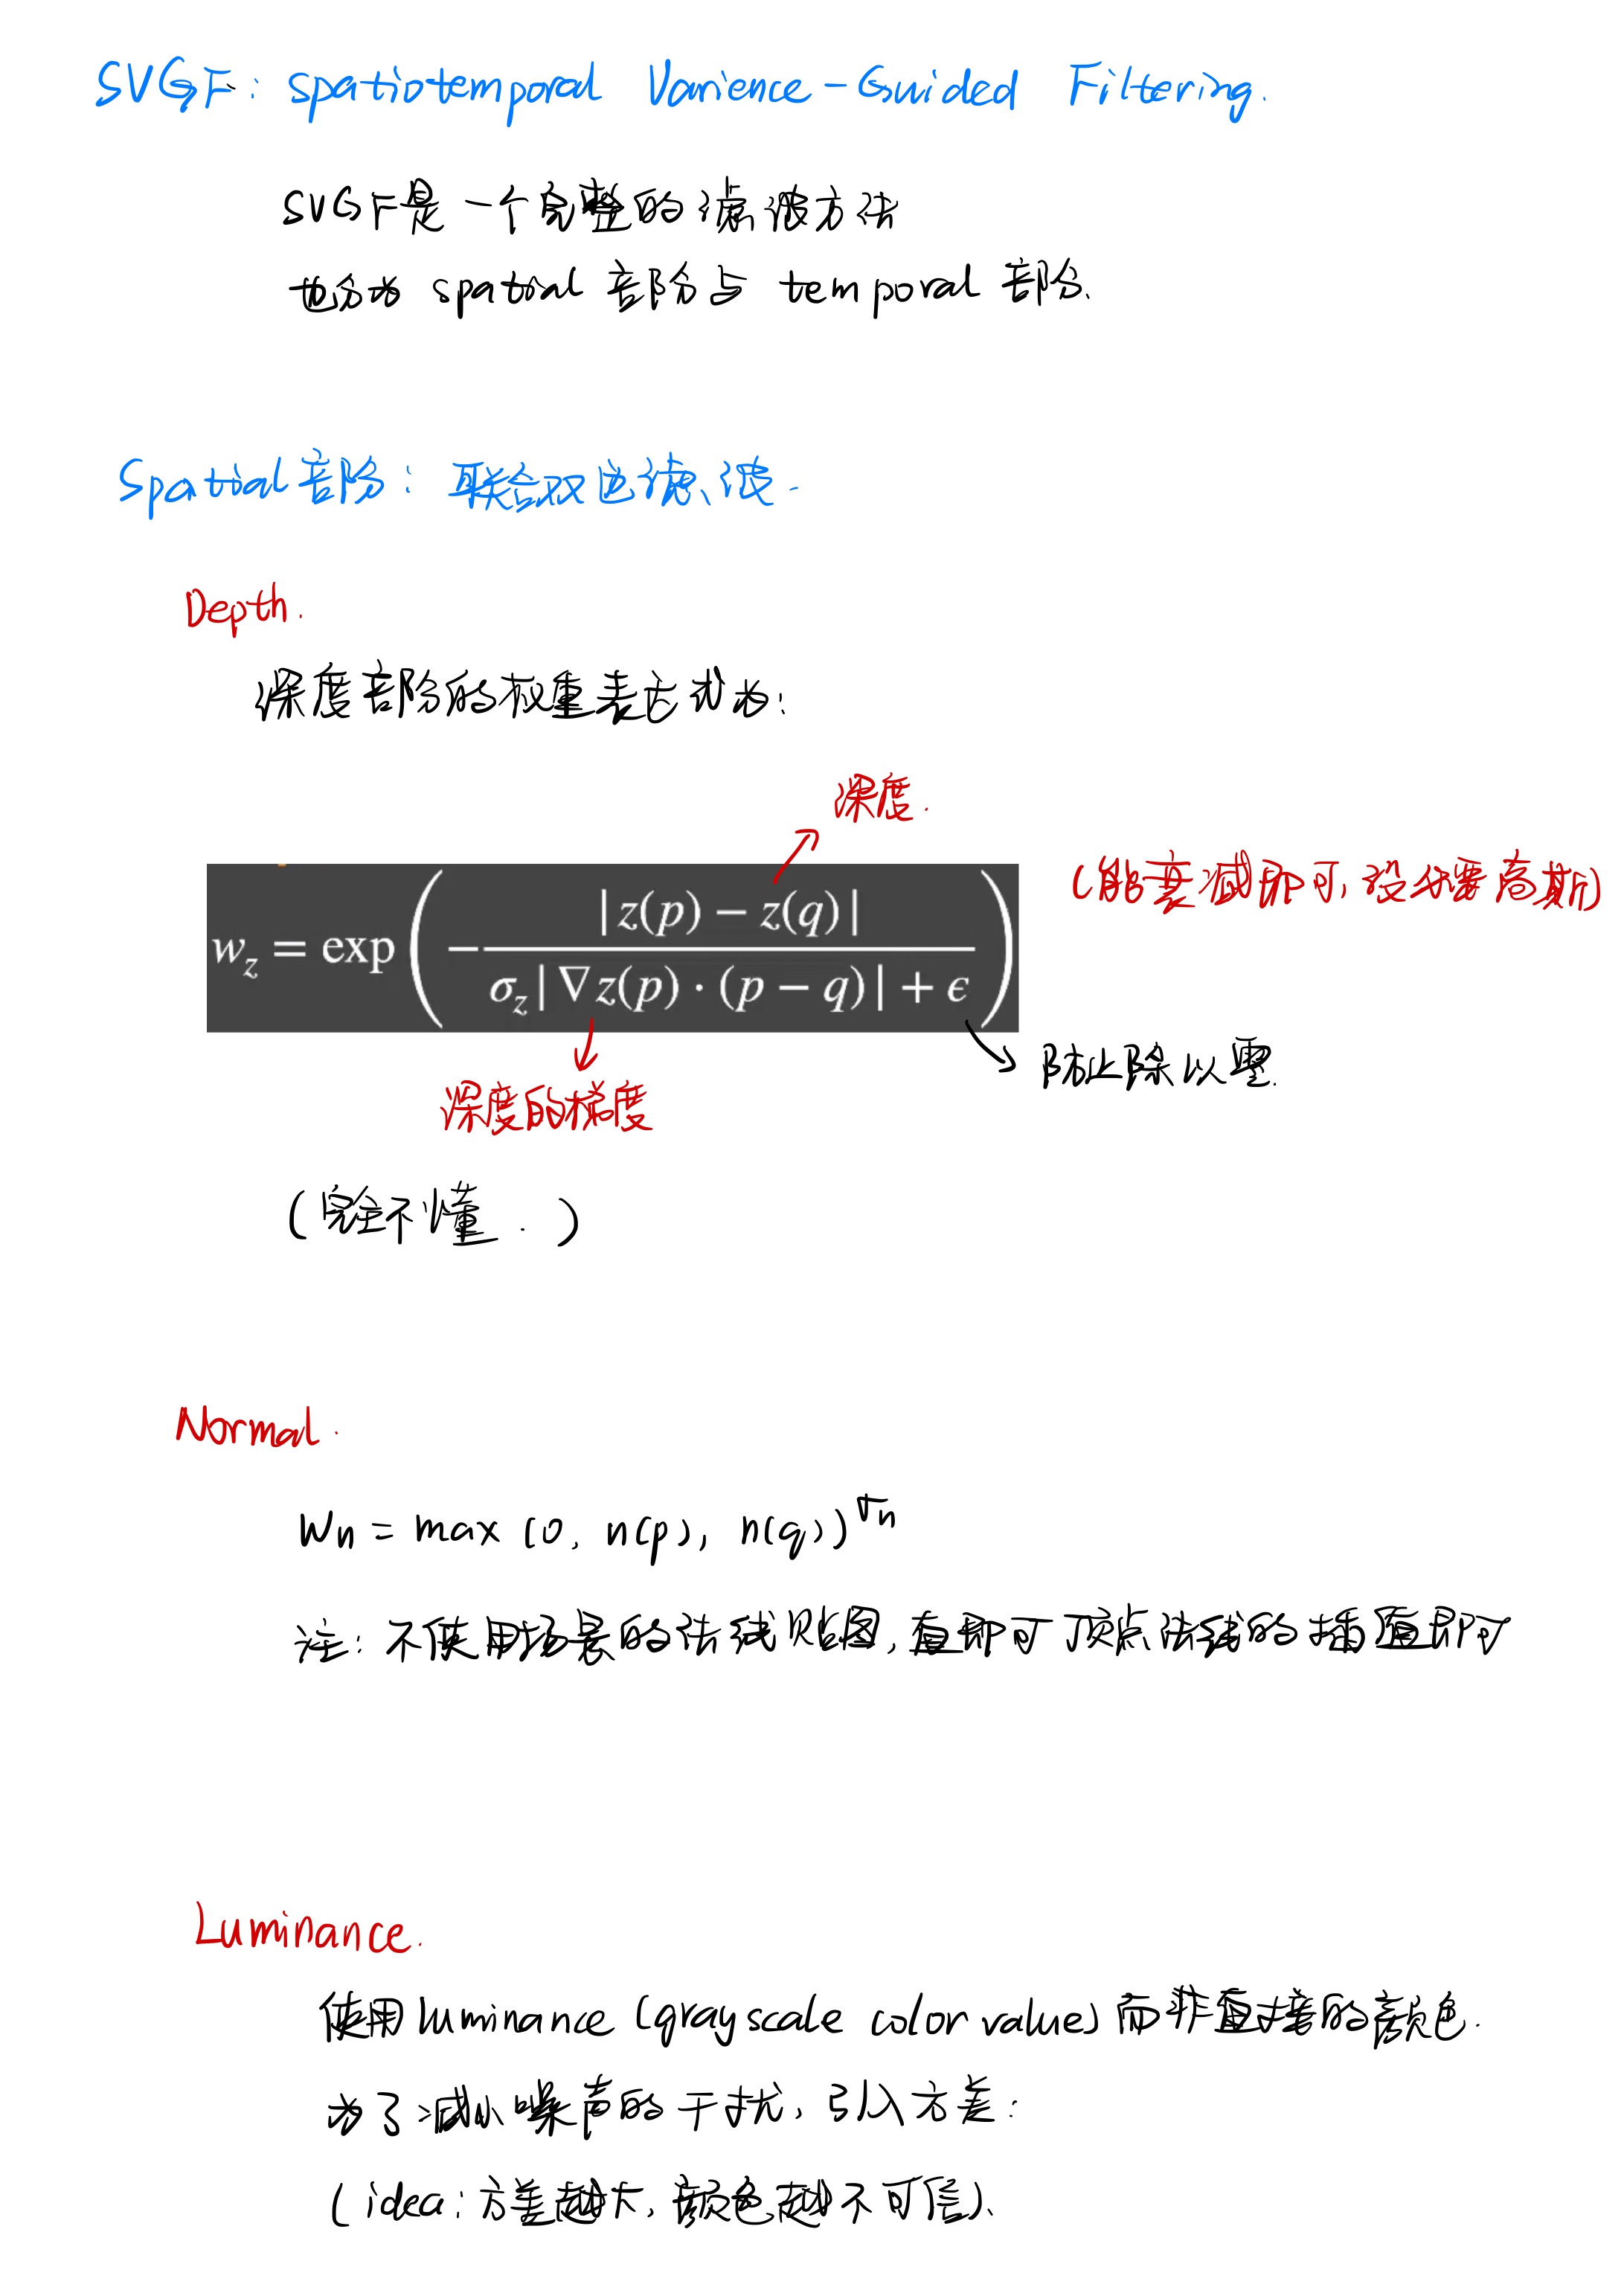 SVGF: spatiotemporal Varience-Guided Filtering.
SVGF是一个完整的滤波方法
也分为 spatial 部分与 temporal 部分.
Spatial部分: 联合双边滤波.
Depth.
深度部分的权重表达式为:
深度.
(能衰减即可, 没必要高斯)
w_z = exp(-|z(p) − z(q)| / (σ_z|∇z(p)·(p − q)| + ϵ))
防止除以零.
深度的梯度
(完全不懂.)
Normal.
Wn = max (0, n(p), n(q))^σn
注: 不使用场景的法线贴图, 直即可顶点法线的插值即可
Luminance.
使用 luminance (gray scale color value) 而非直接的颜色.
为了减小噪声的干扰, 引入方差:
(idea: 方差越大, 颜色越不可信).